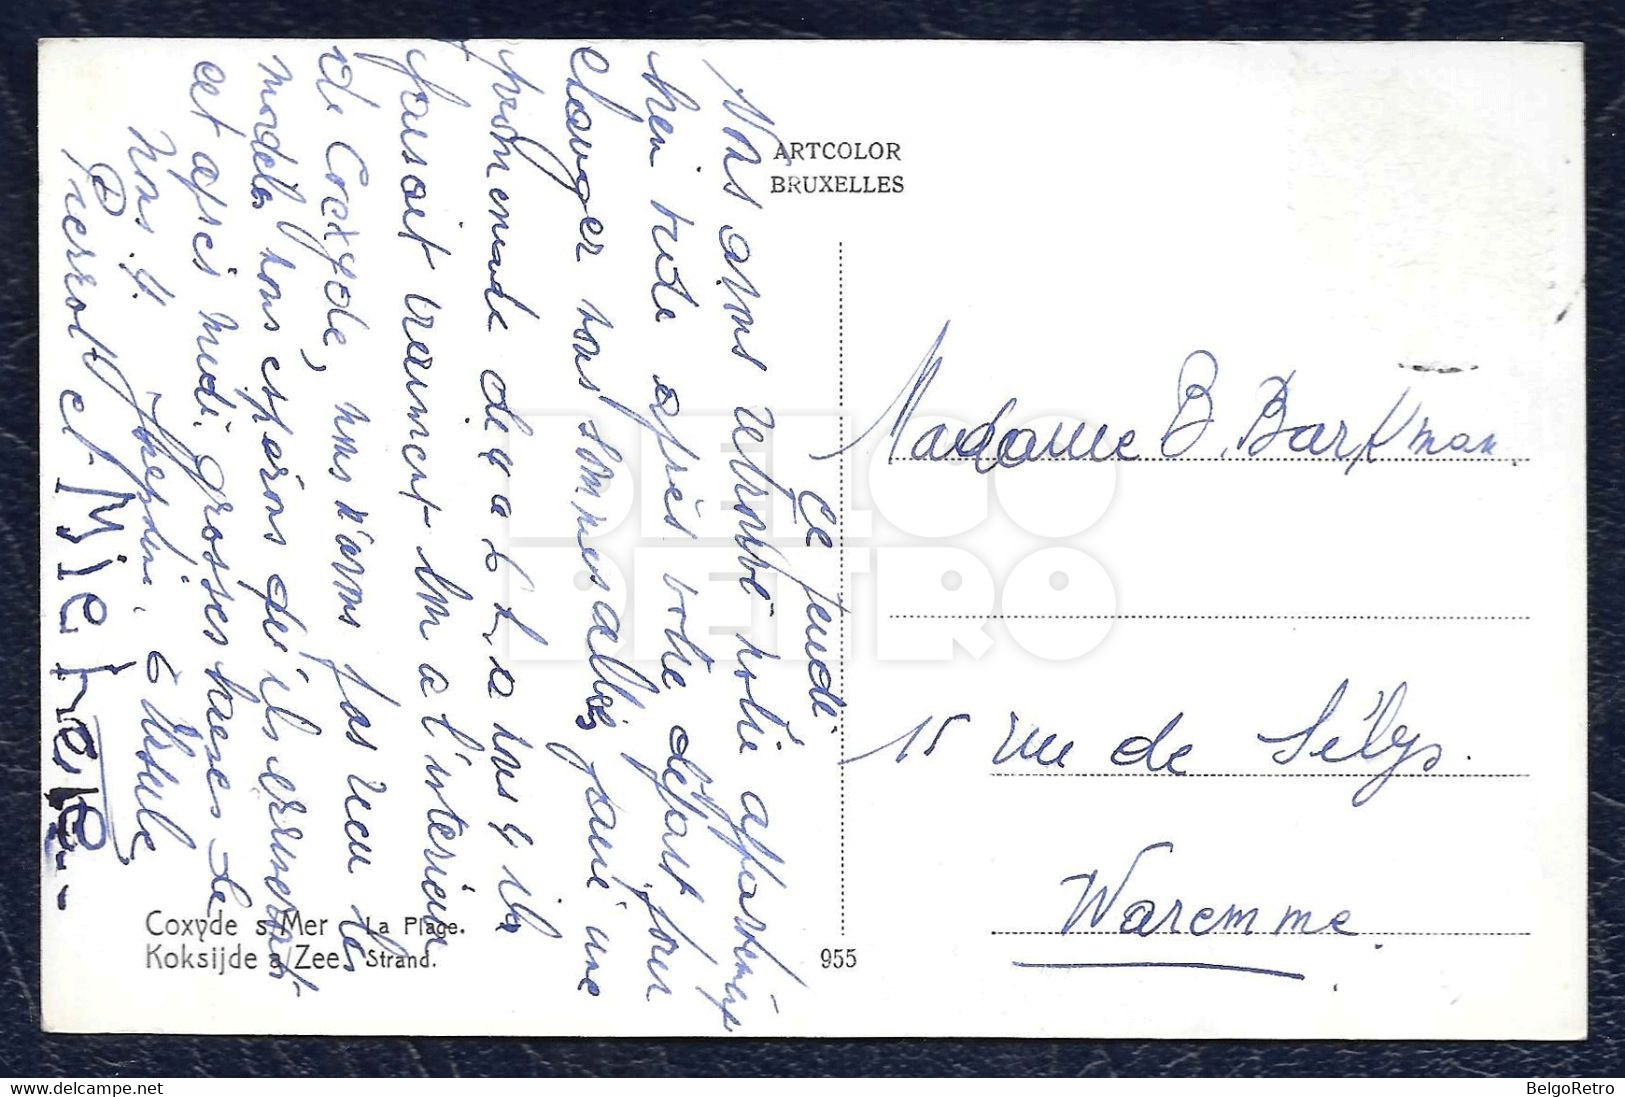 ARTCOLOR
BRUXELLES
Ce Jeudi
Nous avons retrouvé notre appartement
bien vide après votre départ pour
changer nous sommes allés faire une
promenade digue à La
faisait vraiment bon à l'intérieur
de Coxyde, nous n'avons pas reçu les
modèles nous espérons qu'ils arriveront
cet après midi. grosses bises de
nous 4.
Ursule
Pierrot et Michele
Madame B. Barkman.
15 rue de Sélys.
Waremme.
Coxyde s/Mer La Plage.
Koksijde a/Zee Strand.
955
BELGO
RETRO
delcampe.net
BelgoRetro